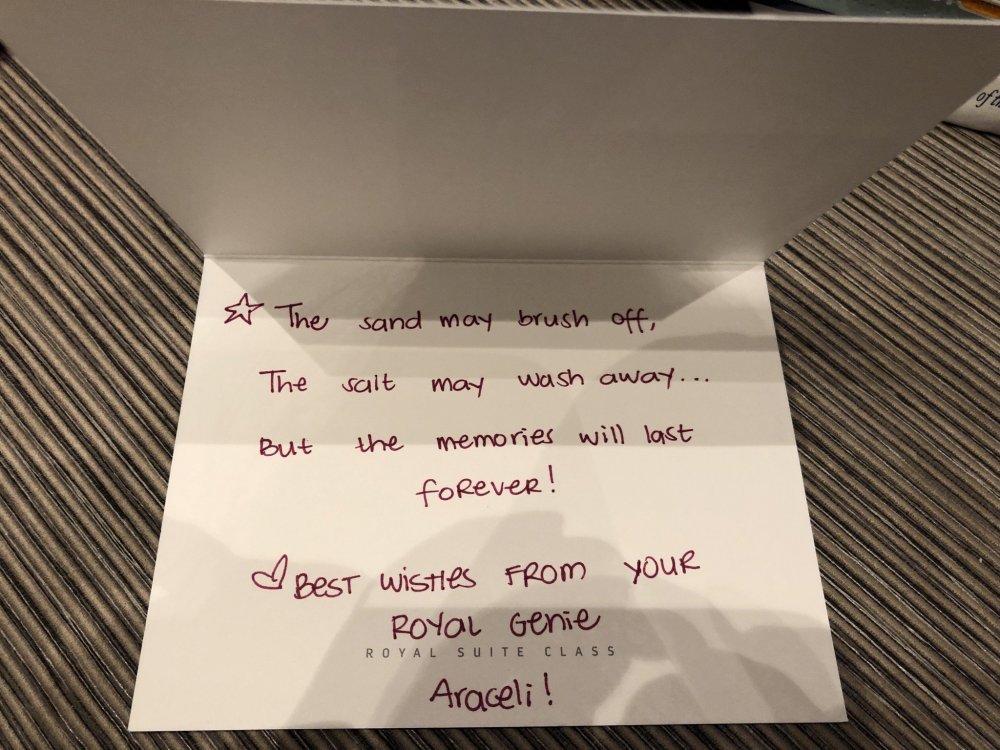 The sand may brush off,
The salt may wash away...
But the memories will last
foReveR!
BesT wisHes FROM YOUR
ROYAL Genie
ROYAL SUITE CLASS
Araceli!